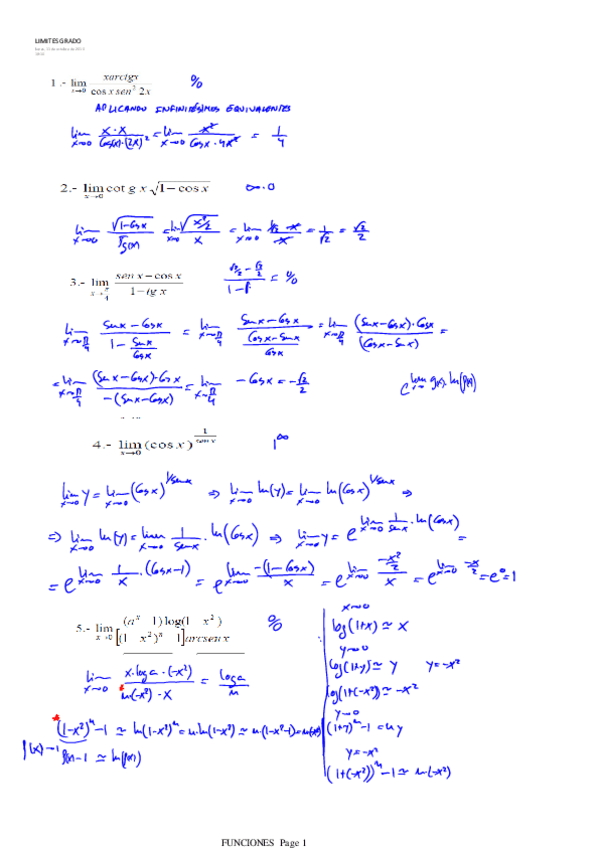 LIMITES GRADO
1.- lim x→0 xarctgx / cos x sen² 2x   0/0
APLICANDO INFINITÉSIMOS EQUIVALENTES
lim x→0 x·x / Cos(x)·(2x)² = lim x→0 x² / Cos x · 4x² = 1/4
2.- lim x→0 cot g x √(1 − cos x)   ∞·0
lim x→0 √(1−Cos x) / tg(x) = lim x→0 √(x²/2) / x = lim x→0 1/√2 · x / x = 1/√2 = √2/2
3.- lim x→π/4 sen x − cos x / 1 − tg x   √2/2 − √2/2 / 1−1 = 0/0
lim x→π/4 Sen x − Cos x / 1 − Sen x/Cos x = lim x→π/4 Sen x − Cos x / Cos x − Sen x/Cos x = lim x→π/4 (Sen x − Cos x)·Cos x / (Cos x − Sen x) =
= lim x→π/4 (Sen x − Cos x)·Cos x / −(Sen x − Cos x) = lim x→π/4 − Cos x = − √2/2   e^lim g(x)·ln(f(x))
4.- lim x→0 (cos x)^1/sen x   1^∞
lim x→0 y = lim x→0 (Cos x)^1/sen x ⇒ lim x→0 ln(y) = lim x→0 ln(Cos x)^1/sen x ⇒
⇒ lim x→0 ln(y) = lim x→0 1/sen x · ln(Cos x) ⇒ lim x→0 y = e^lim x→0 1/sen x · ln(Cos x) =
= e^lim x→0 1/x · (Cos x − 1) = e^lim x→0 −(1−Cos x)/x = e^lim x→0 −x²/2 / x = e^lim x→0 −x/2 = e⁰ = 1
5.- lim x→0 (aˣ 1) log(1 x²) / [(1 x²)ⁿ 1] arcsen x   0/0
lim x→0 x·log a·(−x²) / n(−x²)·x = log a / n
* (1−x²)ⁿ −1 ≃ ln(1−x²)ⁿ = n·ln(1−x²) ≃ n·(1−x²−1) = n(−x²)
f(x)−1
f(x)−1 ≃ ln(f(x))
x→0
log(1+x) ≃ x
y→0
log(1+y) ≃ y   y=−x²
log(1+(−x²)) ≃ −x²
y→0
(1+y)ⁿ −1 = n y
y=−x²
(1+(−x²))ⁿ −1 ≃ n(−x²)
FUNCIONES Page 1